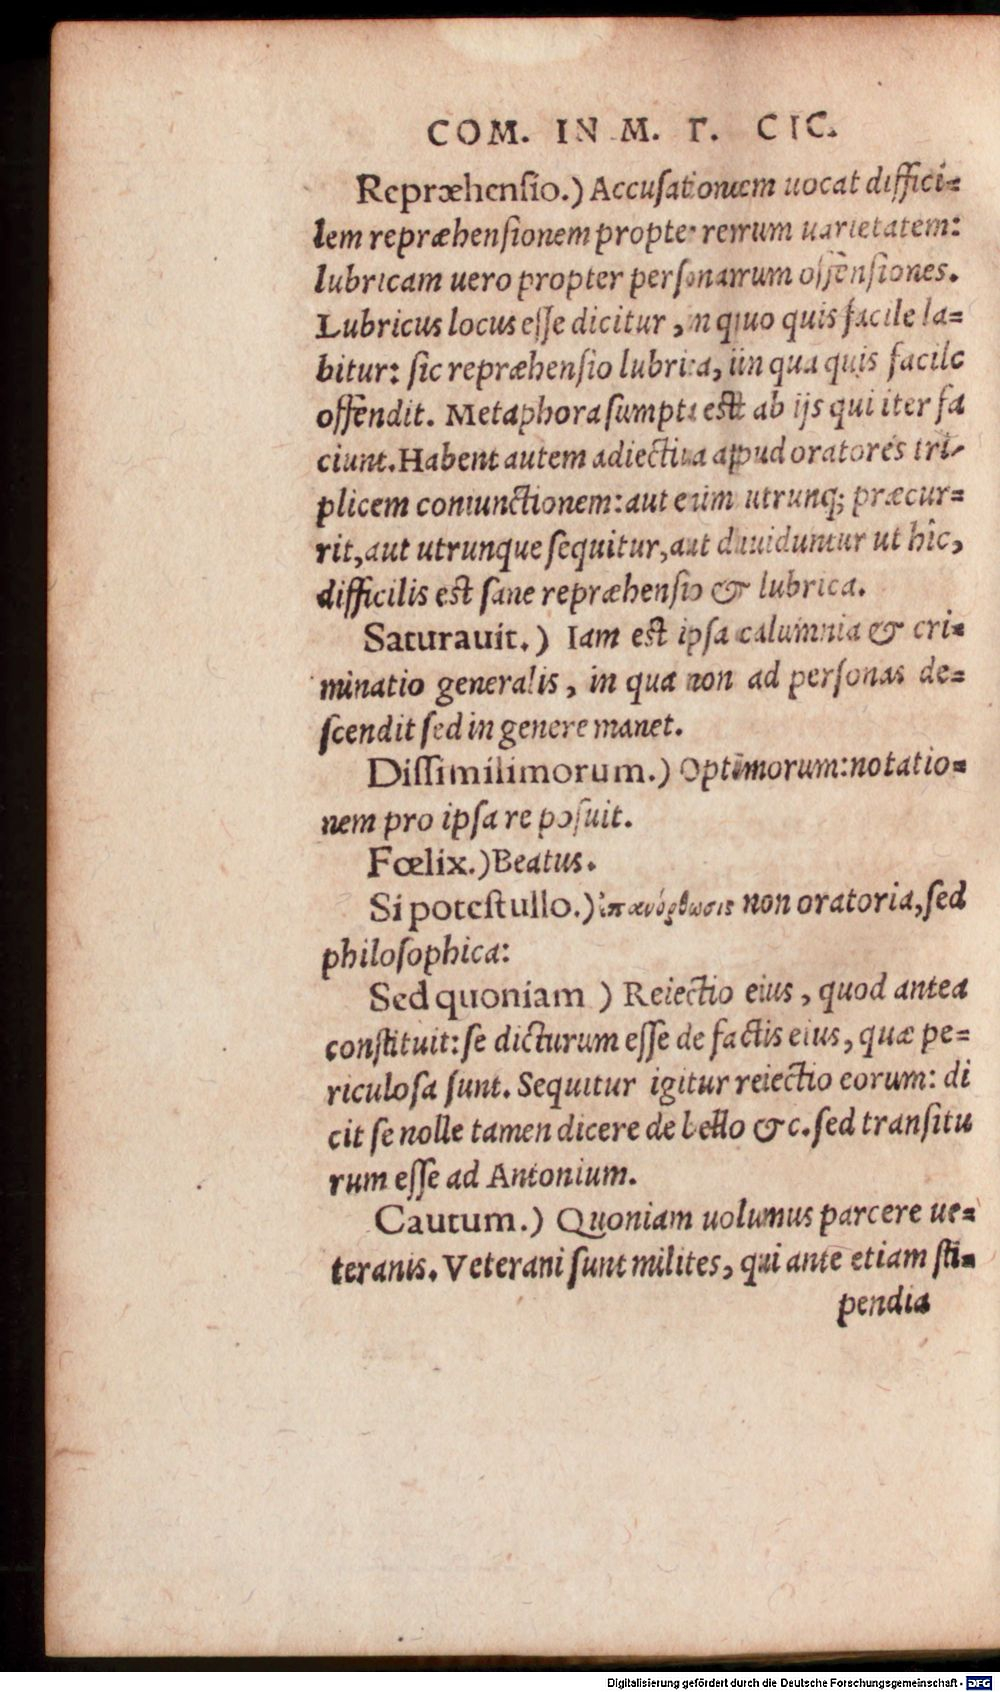 COM. IN M. T. CIC.
Repræhensio.) Accusationem uocat diffici=
lem repræhensionem propter rerum uarietatem:
lubricam uero propter personarum offensiones.
Lubricus locus esse dicitur, in quo quis facile la=
bitur: sic repræhensio lubrica, in qua quis facile
offendit. Metaphora sumpta est ab ijs qui iter fa
ciunt. Habent autem adiectiua apud oratores tri-
plicem coniunctionem: aut enim utrunq; præcur=
rit, aut utrunque sequitur, aut diuiduntur ut hîc,
difficilis est sane repræhensio & lubrica.
Saturauit.) Iam est ipsa calumnia & cri=
minatio generalis, in qua non ad personas de=
scendit sed in genere manet.
Dissimilimorum.) Optimorum: notatio=
nem pro ipsa re posuit.
Fœlix.) Beatus.
Si potest ullo.) ἐπανόρθωσις non oratoria, sed
philosophica:
Sed quoniam ) Reiectio eius, quod antea
constituit: se dicturum esse de factis eius, quæ pe=
riculosa sunt. Sequitur igitur reiectio eorum: di
cit se nolle tamen dicere de bello &c. sed transitu
rum esse ad Antonium.
Cautum.) Quoniam uolumus parcere ue=
teranis. Veterani sunt milites, qui ante etiam sti=
pendia
Digitalisierung gefördert durch die Deutsche Forschungsgemeinschaft - DFG